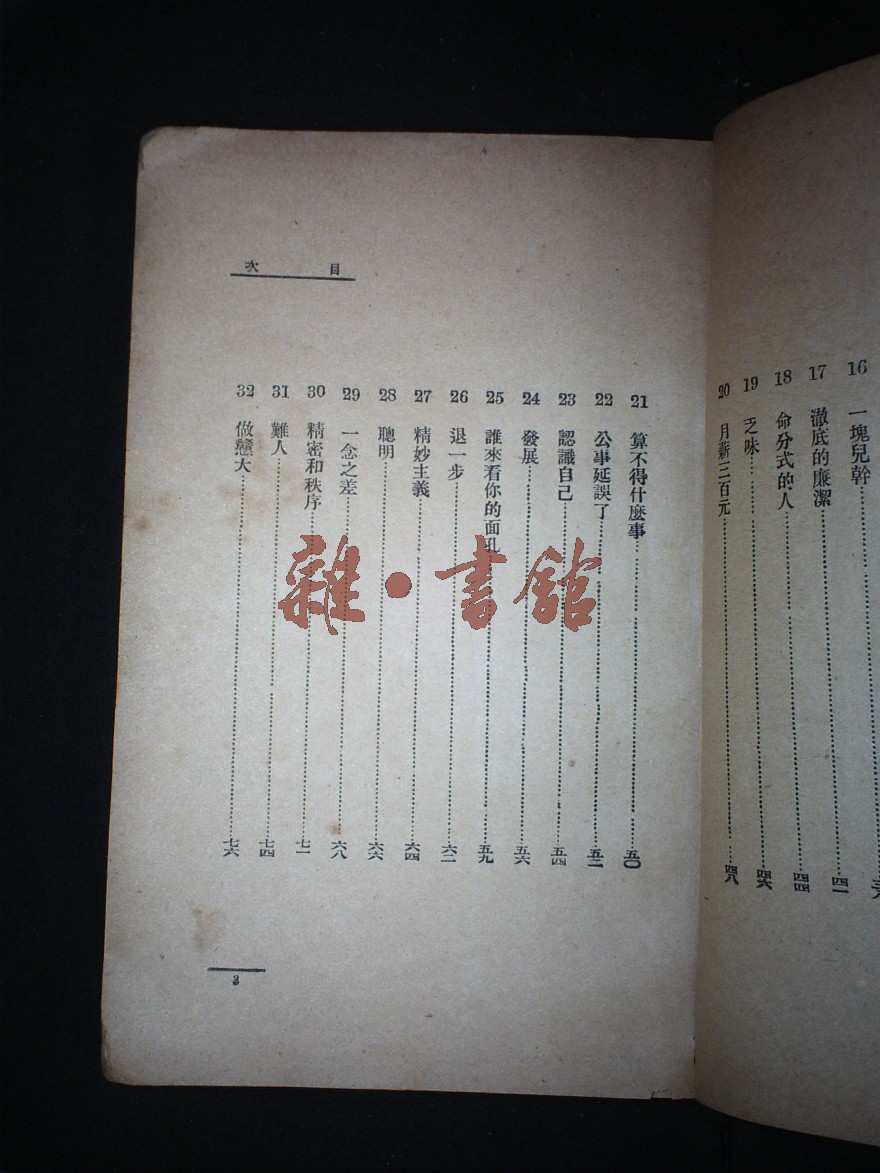 16 一塊兒幹
17 澈底的廉潔……四二
18 命分式的人……四四
19 乏味……四六
20 月薪三百元……四八
目次
21 算不得什麼事……五〇
22 公事延誤了……五二
23 認識自己……五四
24 發展……五六
25 誰來看你的面孔……五九
26 退一步……六二
27 精妙主義……六四
28 聰明……六六
29 一念之差……六八
30 精密和秩序……七一
31 難人……七四
32 做戇大……七六
雜·書館